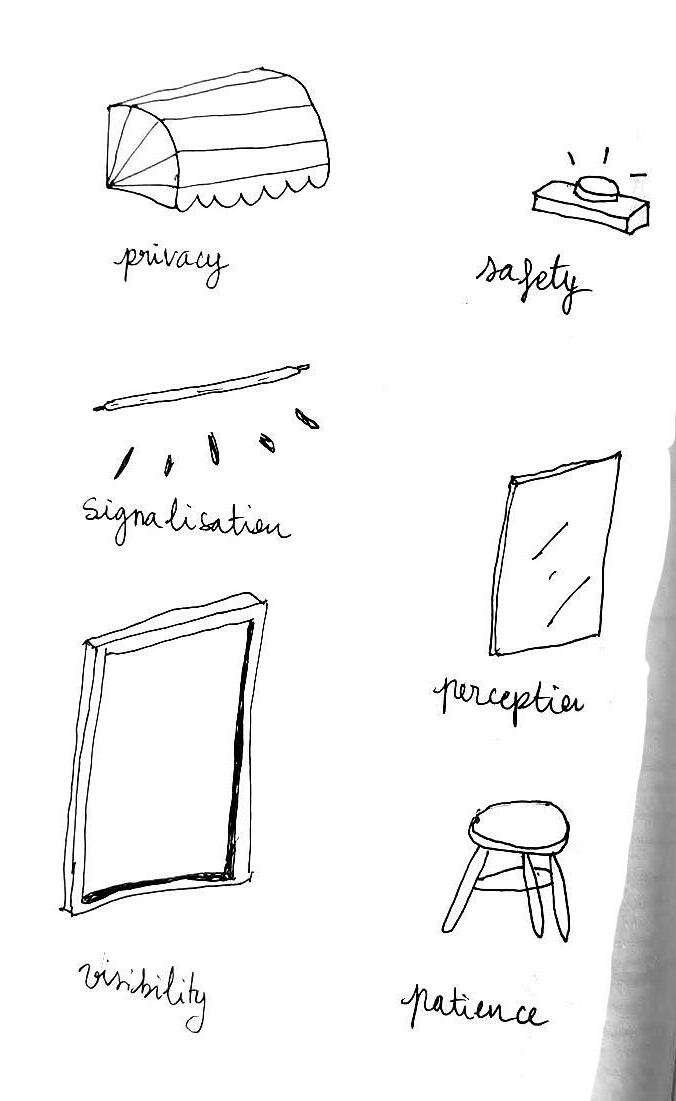 privacy
safety
signalisation
perception
visibility
patience